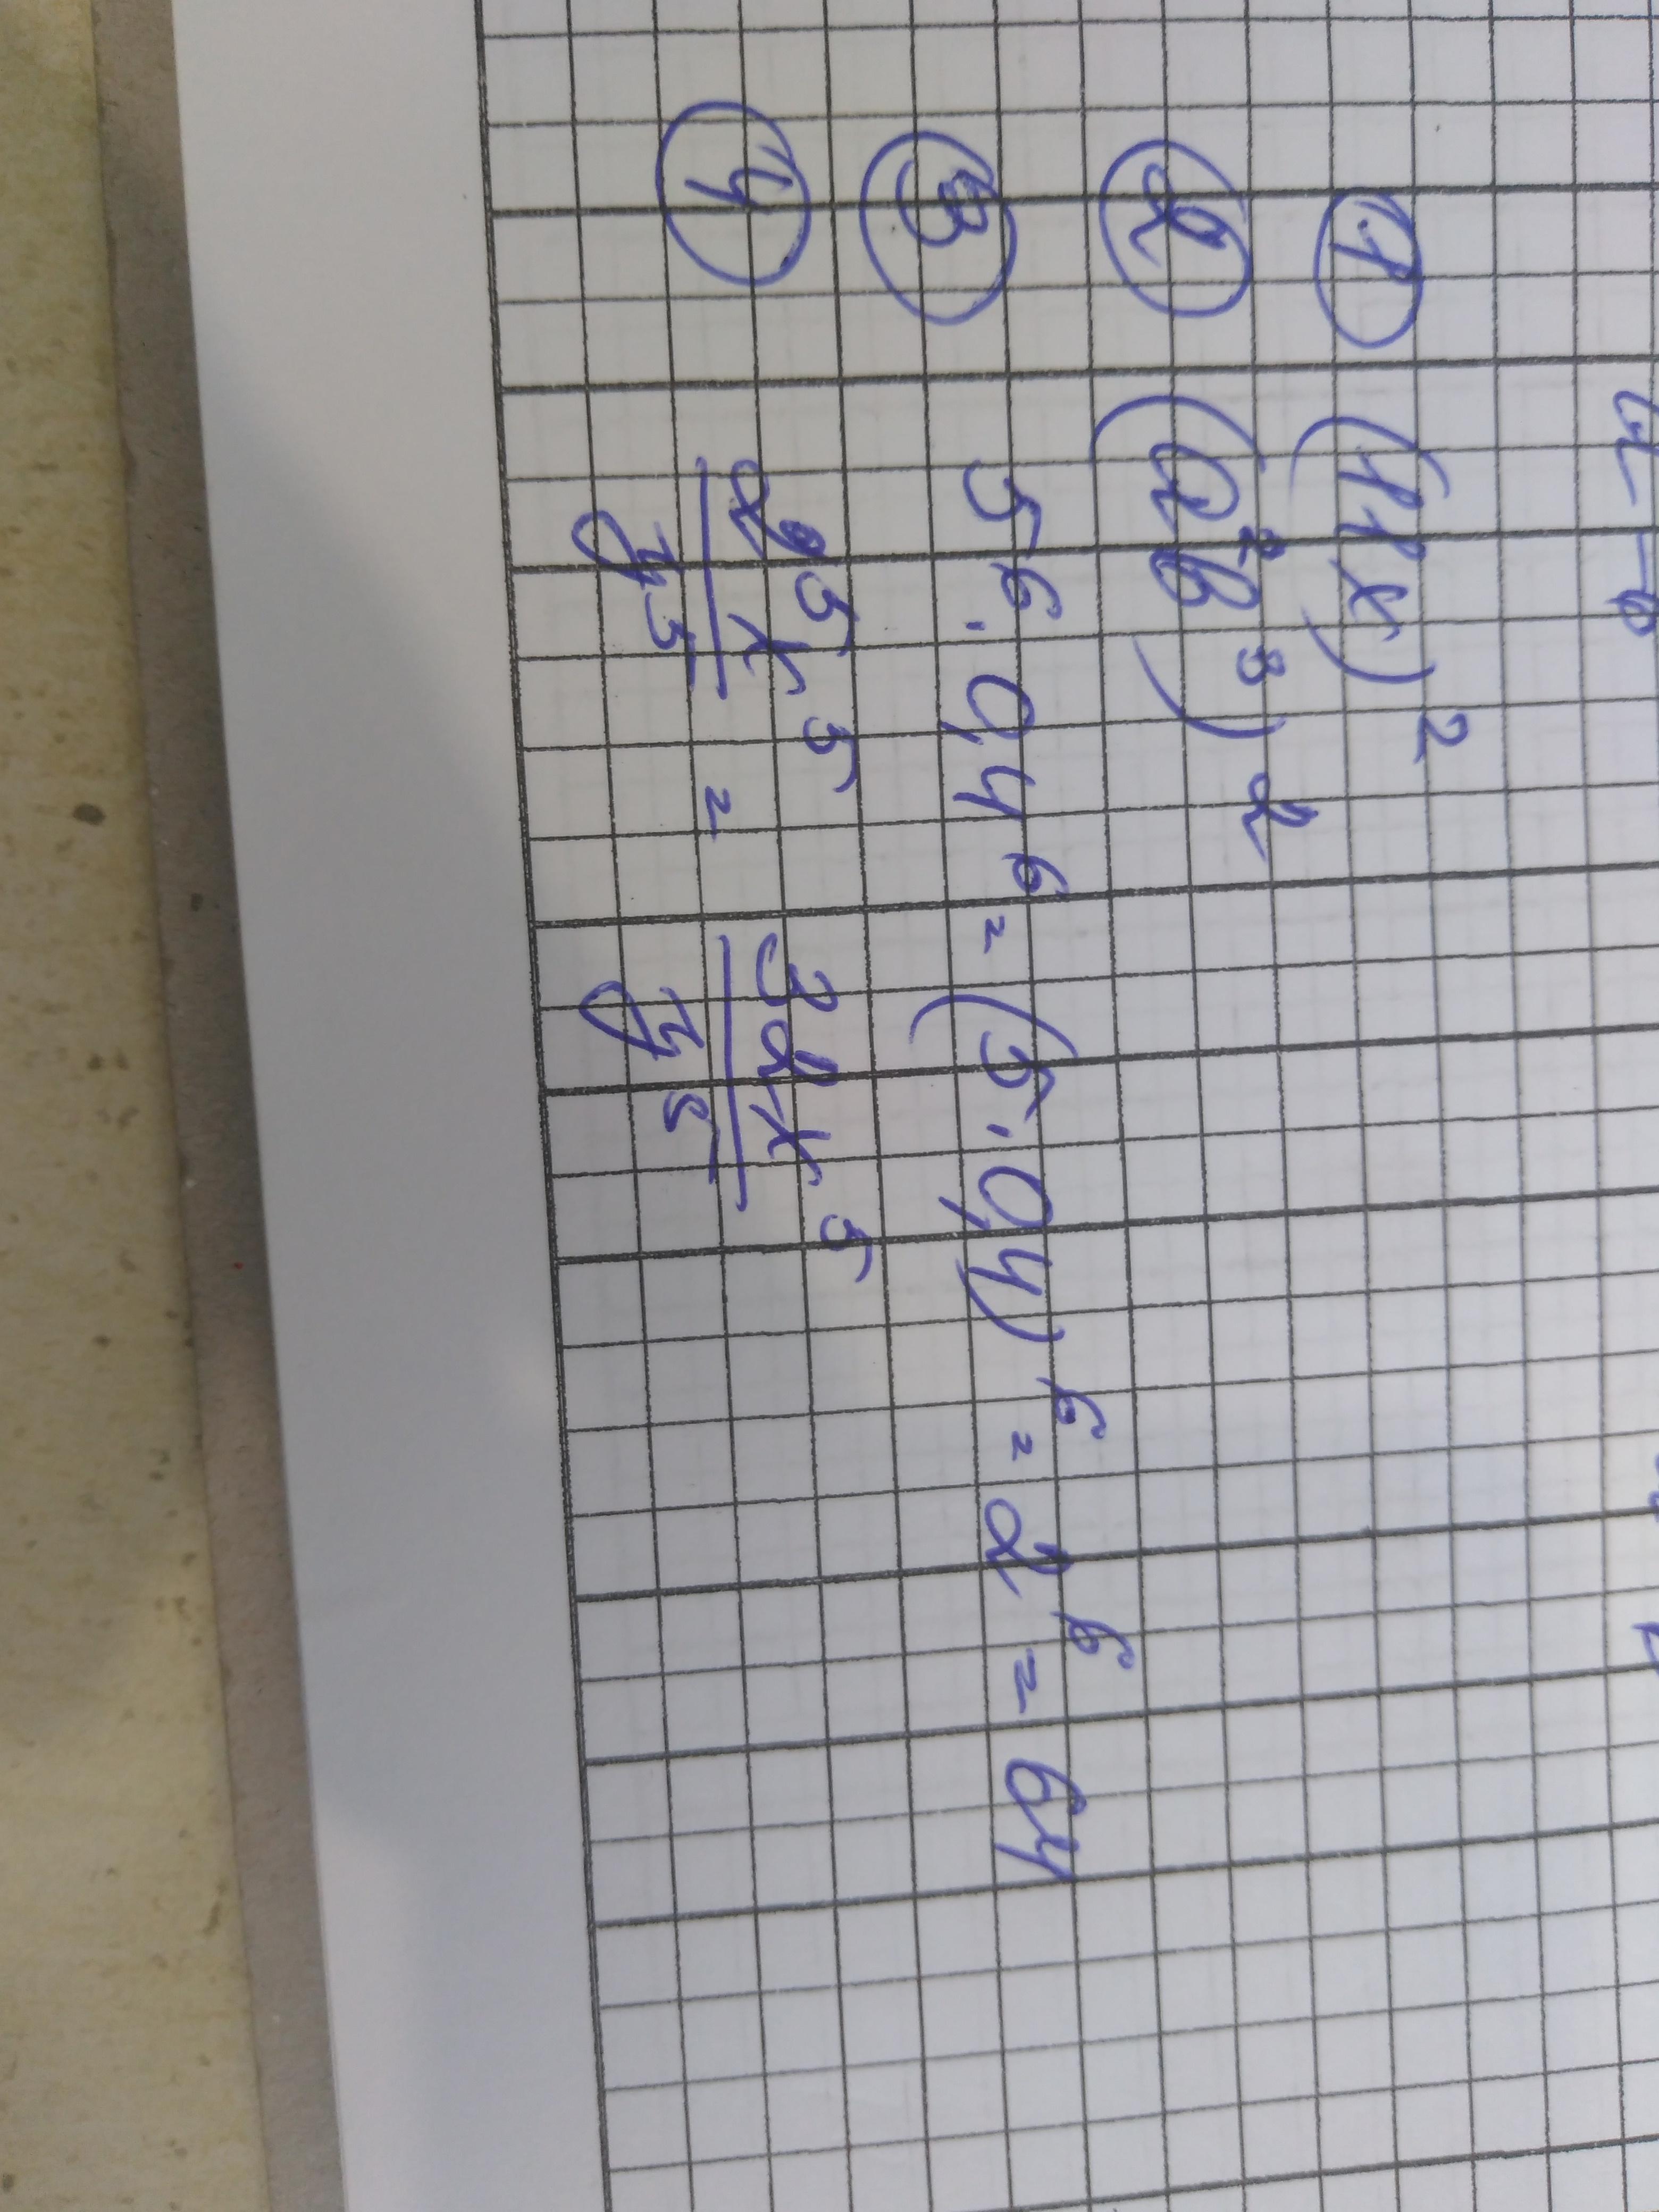 ① (11x)²
② (a²b³)²
③ 5⁶ · 0,4⁶ = (5 · 0,4)⁶ = 2⁶ = 64
④ 2⁵x⁵/y⁵ = 32x⁵/y⁵